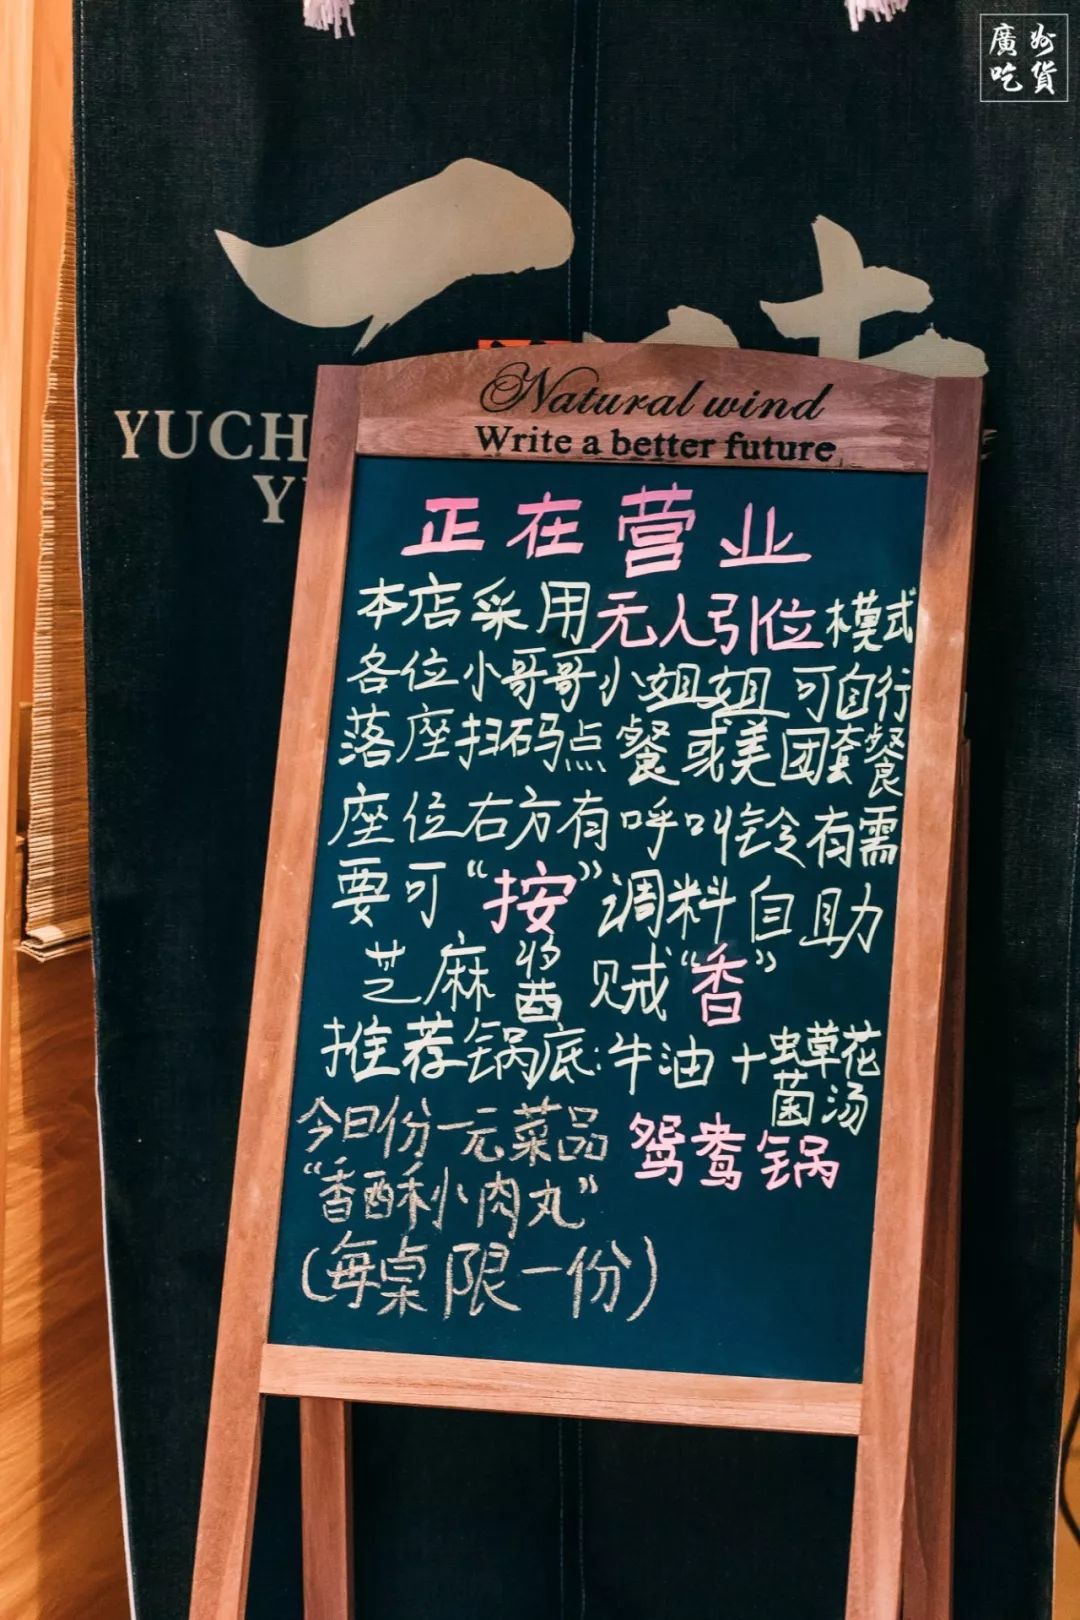 廣州
吃貨
一
YUCH
Y
Natural wind
Write a better future
正在营业
本店采用无人引位模式
各位小哥哥小姐姐可自行
落座扫码点餐或美团套餐
座位右方有呼叫铃有需
要可“按”调料自助
芝麻酱贼“香”
推荐锅底:牛油+虫草花
菌汤
鸳鸯锅
今日份一元菜品
“香酥小肉丸”
(每桌限一份)